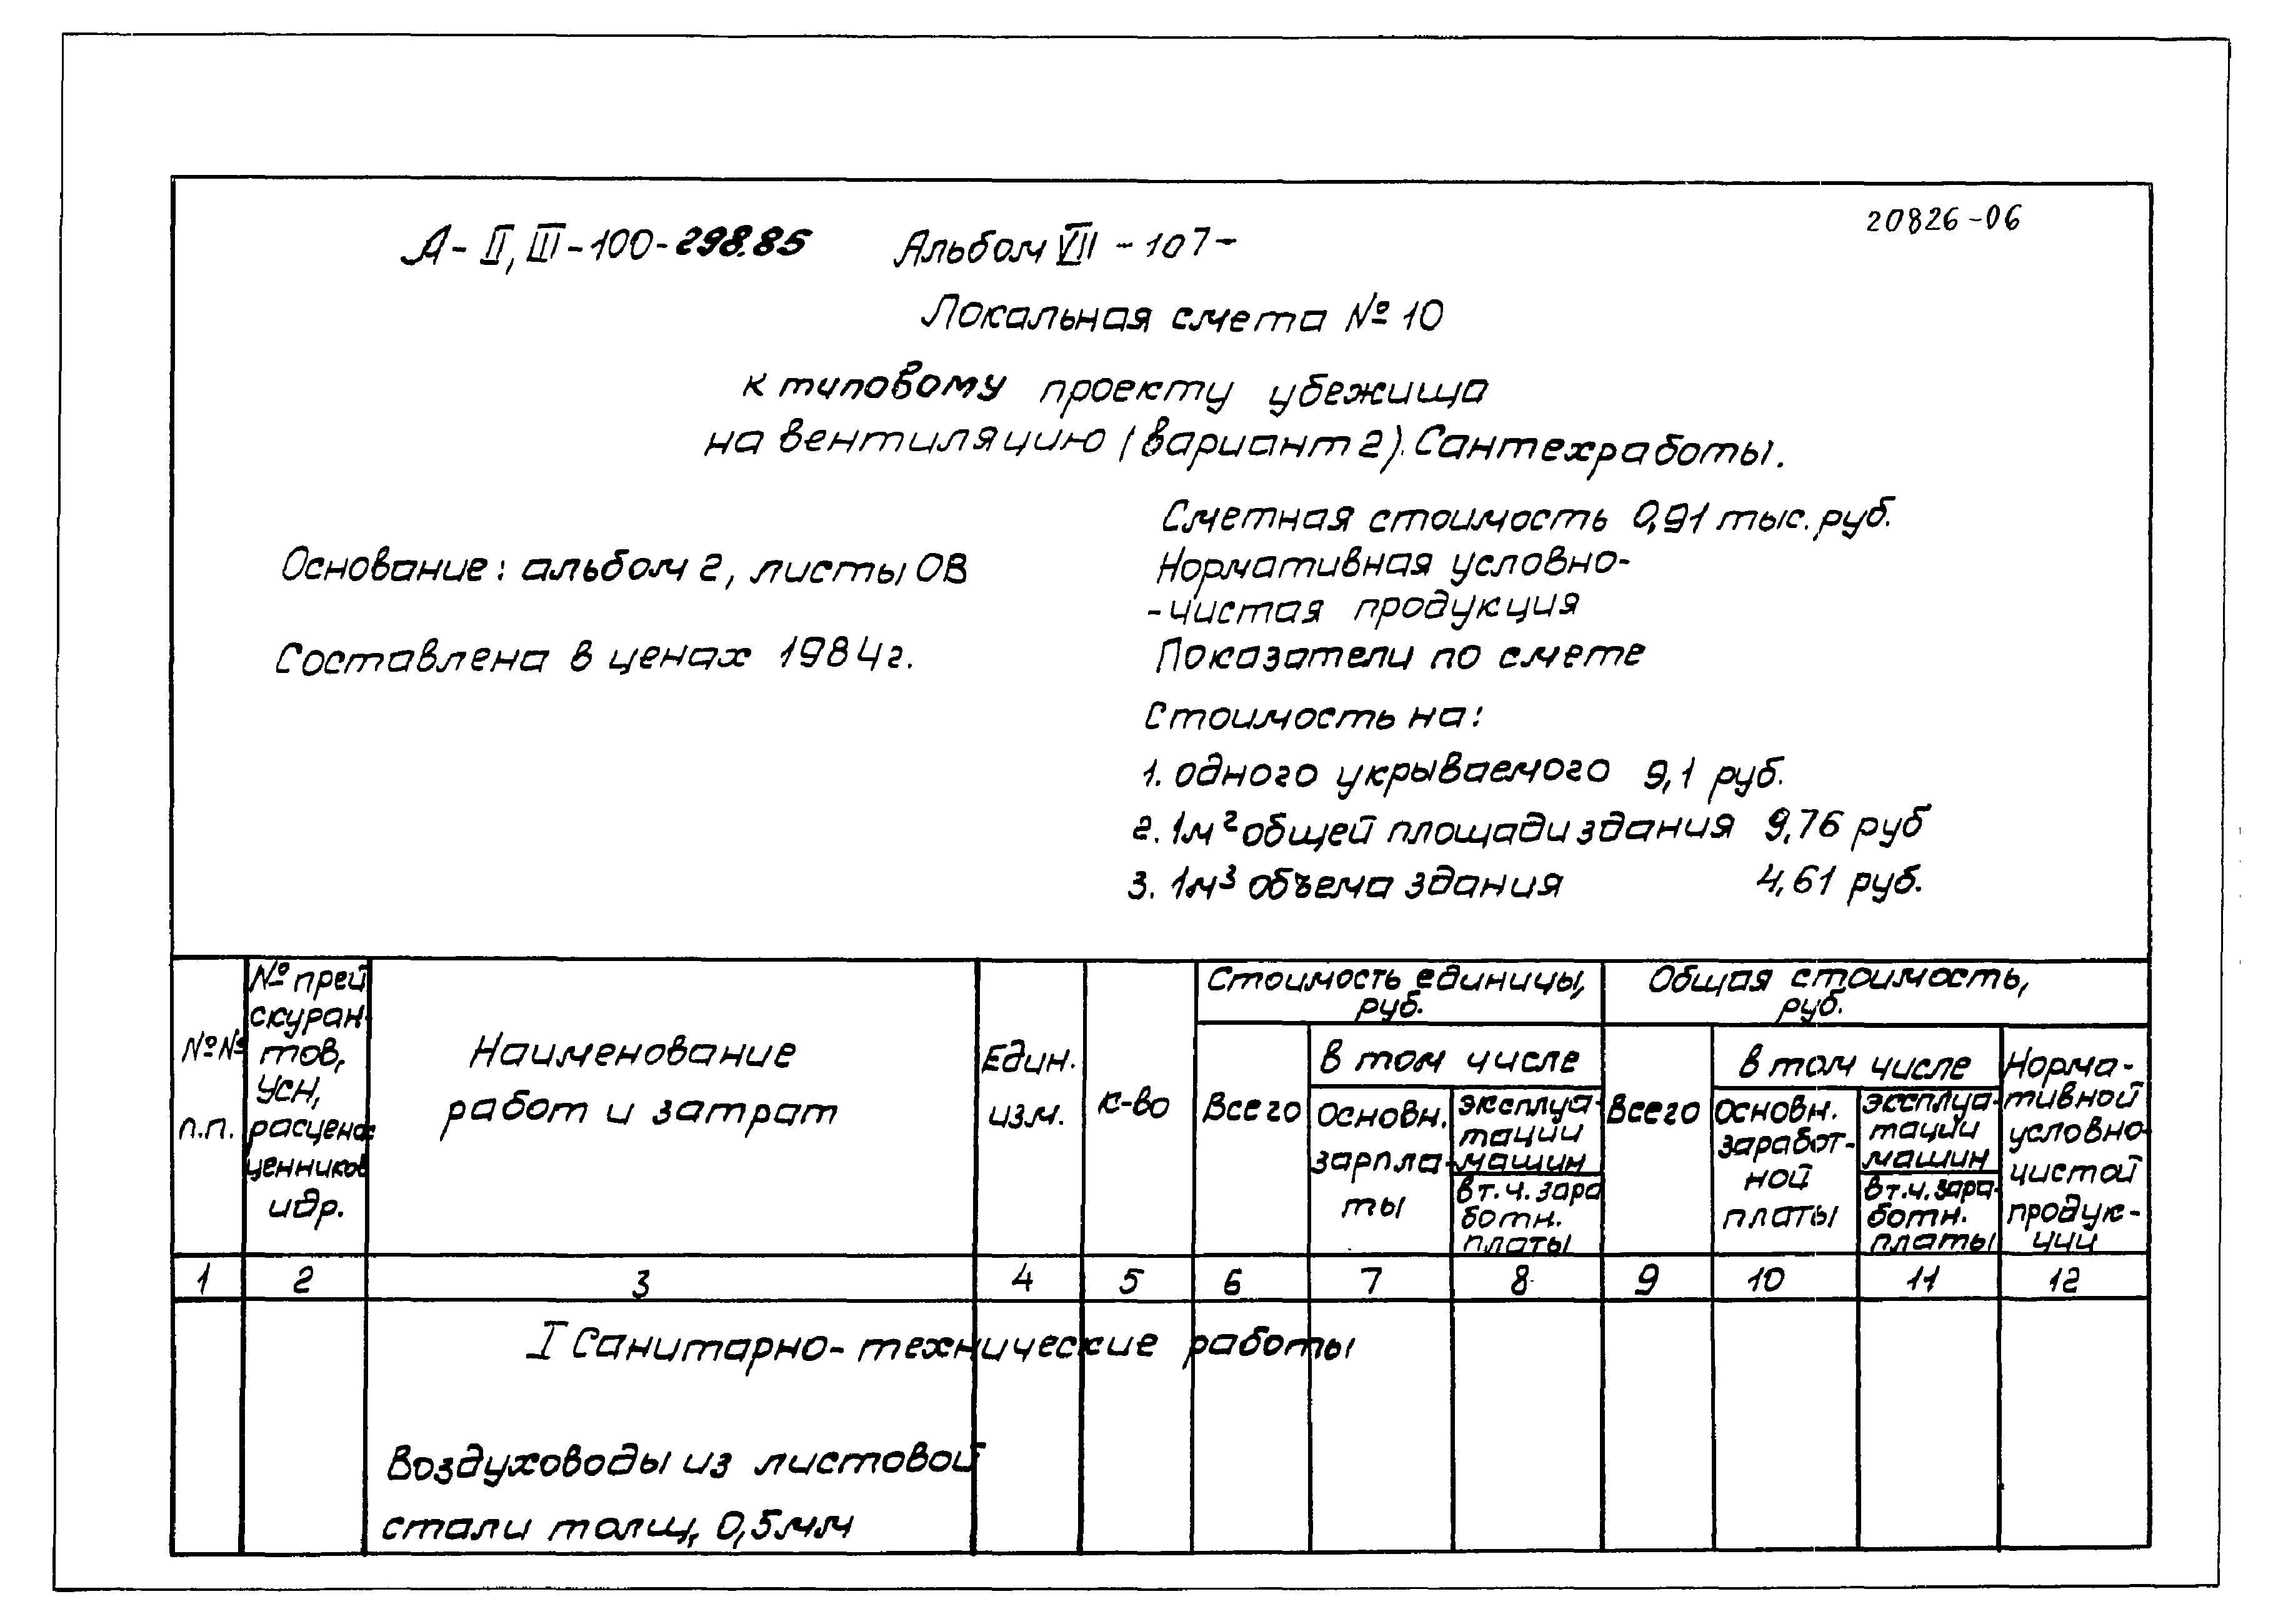 20826-06
А-II, III-100-298.85 Альбом VII -107-
Локальная смета № 10
к типовому проекту убежища
на вентиляцию (вариант 2). Сантехработы.
Сметная стоимость 0,91 тыс. руб.
Основание: альбом 2, листы ОВ
Нормативная условно-
-чистая продукция
Составлена в ценах 1984г.
Показатели по смете
Стоимость на:
1. одного укрываемого 9,1 руб.
2. 1м² общей площади здания 9,76 руб
3. 1м³ объема здания 4,61 руб.
№№
п.п.
№ прей
скуран-
тов,
УСН,
расцено-
ценников
и др.
Наименование
работ и затрат
Един.
изм.
к-во
Стоимость единицы,
руб.
Всего
в том числе
основн.
зарпла-
ты
эксплуа-
тации
машин
в т.ч. зара
ботн.
платы
Общая стоимость,
руб.
Всего
в том числе
основн.
заработ-
ной
платы
эксплуа-
тации
машин
в т.ч. зара-
ботн.
платы
Норма-
тивной
условно-
чистой
продук-
ции
1 2 3 4 5 6 7 8 9 10 11 12
I Санитарно-технические работы
Воздуховоды из листовой
стали толщ. 0,5мм